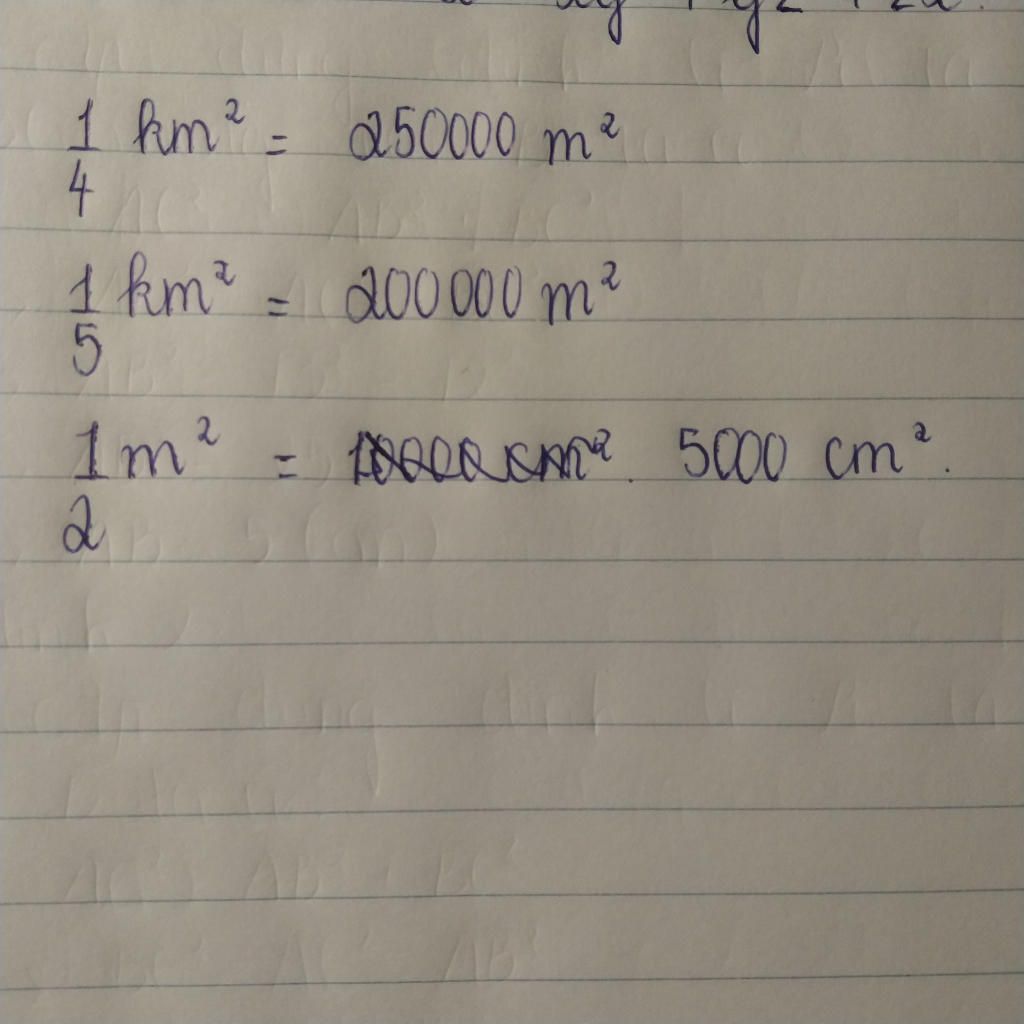 xy + yz + zx.
1/4 km² = 250000 m²
1/5 km² = 200000 m²
1/2 m² = 5000 cm².